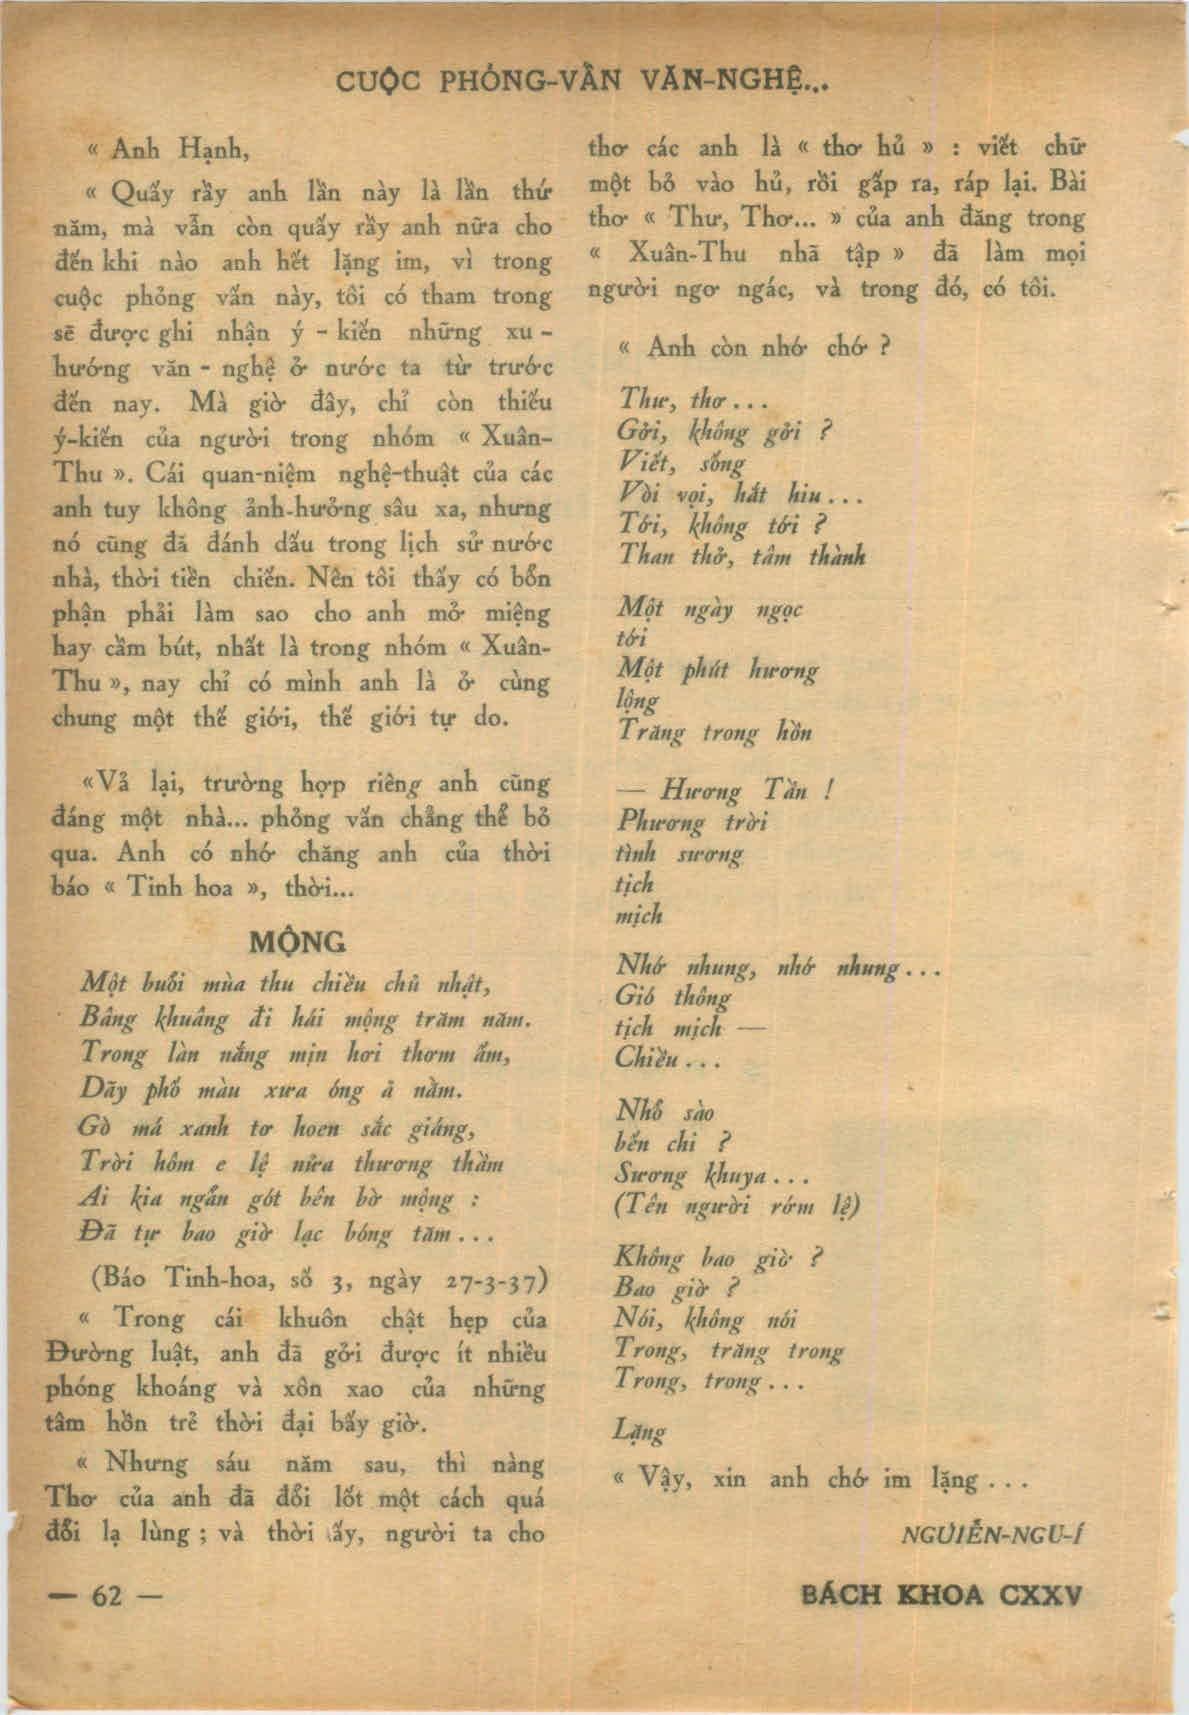 CUỘC PHỎNG-VẤN VĂN-NGHỆ...
« Anh Hạnh,
« Quấy rầy anh lần này là lần thứ
năm, mà vẫn còn quấy rầy anh nữa cho
đến khi nào anh hết lặng im, vì trong
cuộc phỏng vấn này, tôi có tham trong
sẽ được ghi nhận ý - kiến những xu -
hướng văn - nghệ ở nước ta từ trước
đến nay. Mà giờ đây, chỉ còn thiếu
ý-kiến của người trong nhóm « Xuân-
Thu ». Cái quan-niệm nghệ-thuật của các
anh tuy không ảnh-hưởng sâu xa, nhưng
nó cũng đã đánh dấu trong lịch sử nước
nhà, thời tiền chiến. Nên tôi thấy có bổn
phận phải làm sao cho anh mở miệng
hay cầm bút, nhất là trong nhóm « Xuân-
Thu », nay chỉ có mình anh là ở cùng
chung một thế giới, thế giới tự do.
«Vả lại, trường hợp riêng anh cũng
đáng một nhà... phỏng vấn chẳng thể bỏ
qua. Anh có nhớ chăng anh của thời
báo « Tinh hoa », thời...
MỘNG
Một buổi mùa thu chiều chủ nhật,
Bâng khuâng đi hái mộng trăm năm.
Trong làn nắng mịn hơi thơm ấm,
Dãy phố màu xưa óng ả nằm.
Gò má xanh tơ hoen sắc giáng,
Trời hôm e lệ nửa thương thầm
Ai kia ngẩn gót bên bờ mộng :
Đã tự bao giờ lạc bóng tăm...
(Báo Tinh-hoa, số 3, ngày 27-3-37)
« Trong cái khuôn chật hẹp của
Đường luật, anh đã gởi được ít nhiều
phóng khoáng và xôn xao của những
tâm hồn trẻ thời đại bấy giờ.
« Nhưng sáu năm sau, thì nàng
Thơ của anh đã đổi lốt một cách quá
đổi lạ lùng ; và thời ấy, người ta cho
thơ các anh là « thơ hủ » : viết chữ
một bỏ vào hủ, rồi gắp ra, ráp lại. Bài
thơ « Thư, Thơ... » của anh đăng trong
« Xuân-Thu nhã tập » đã làm mọi
người ngơ ngác, và trong đó, có tôi.
« Anh còn nhớ chớ ?
Thư, thơ...
Gởi, không gởi ?
Viết, sống
Vòi vọi, hắt hiu...
Tới, không tới ?
Than thở, tâm thành
Một ngày ngọc
tới
Một phút hương
lộng
Trăng trong hồn
— Hương Tần !
Phương trời
tình sương
tịch
mịch
Nhớ nhung, nhớ nhung...
Gió thông
tịch mịch —
Chiều...
Nhổ sào
bến chi ?
Sương khuya...
(Tên người rớm lệ)
Không bao giờ ?
Bao giờ ?
Nói, không nói
Trong, trăng trong
Trong, trong...
Lặng
« Vậy, xin anh chớ im lặng...
NGUIỄN-NGU-Í
— 62 —
BÁCH KHOA CXXV